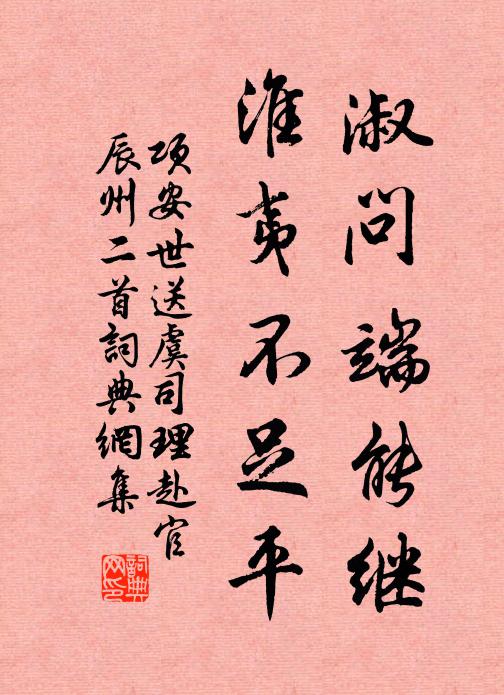 淑问端能继
淮夷不足平
项安世送虞司理赴官
辰州二首詞典網集
詞典网印